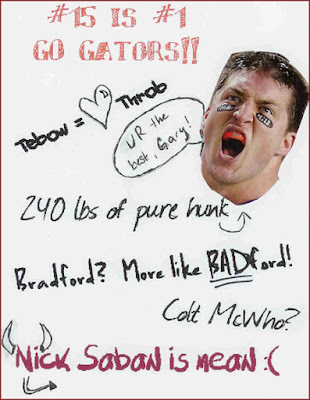 #15 IS #1
GO GATORS!!
Tebow = Throb
UR the
best, Gary!
240 lbs of pure hunk
Bradford? More like BADford!
Colt McWho?
Nick Saban is mean :(